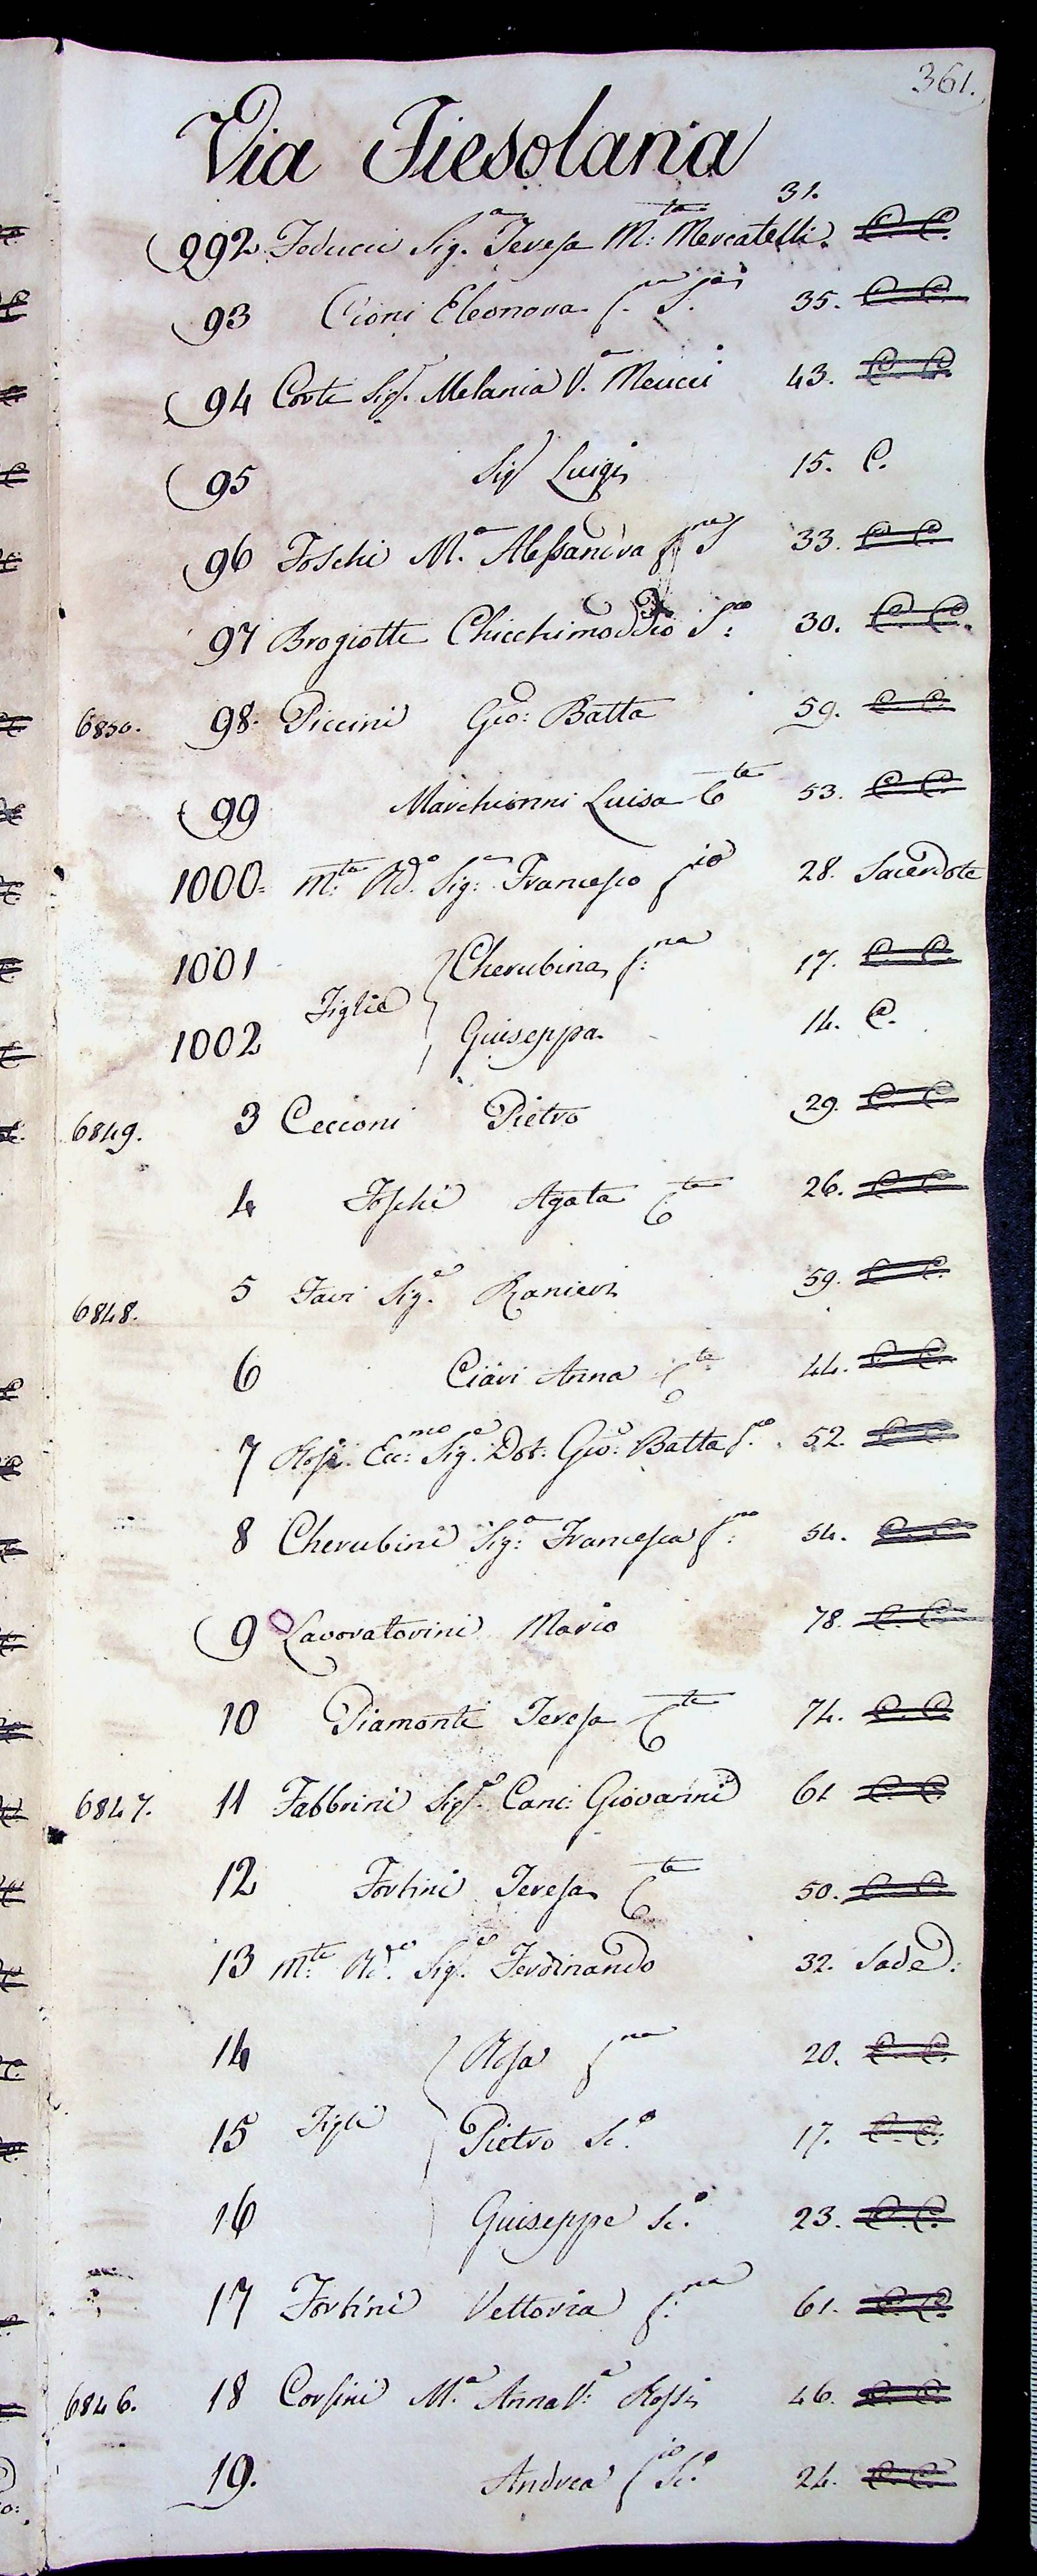 361.
Via Fiesolana
992 Feducci Sig.ª Teresa M:ta Mercatelli. 31. C. C.
93 Cioni Eleonora 35. C. C.
94 Conte Sig.ª Melania V.ª Meucci 43. C. C.
95 Sig.e Luigi 15. C.
96 Foschi M.ª Alessandra 33. C. C.
97 Brogiotte Chicchimoddio S:co 30. C. C.
6850. 98. Piccini Gio: Batta 59. C. C.
99 Marchionni Luisa C.te 53. C. C.
1000. M:to Rd.º Sig.: Francesco f.io 28. Sacerdote
1001 Cherubina f:na 17. C. C.
Figlie
1002 Guiseppa. 14. C.
6849. 3 Cecconi Pietro 29. C. C.
4 Foschi Agata C.te 26. C. C.
6848. 5 Favi Sig.e Ranieri 59. C. C.
6 Ciari Anna C.te 44. C. C.
7 Rossi Ecc:mo Sig.e Dot: Gio: Batta S.co 52. C. C.
8 Cherubini Sig:ª Francesca 54. C. C.
9 Lavoratorini Mario 78. C. C.
10 Piamonti Teresa C.te 74. C. C.
6847. 11 Fabbrini Sig.e Canc: Giovanni 61 C. C.
12 Fortini Teresa C.te 50. C. C.
13 M:to Rd.º Sig.e Ferdinando 32. Sade:
14 Rosa f.na 20. C. C.
15 Figli Pietro Sc.º 17. C. C.
16 Guiseppe Sc.º 23. C. C.
17 Fortini Vettoria f:na 61. C. C.
6846. 18 Corsini M.ª Anna V:ª Rossi 46. C. C.
19. Andrea f.io Sc.º 24. C. C.